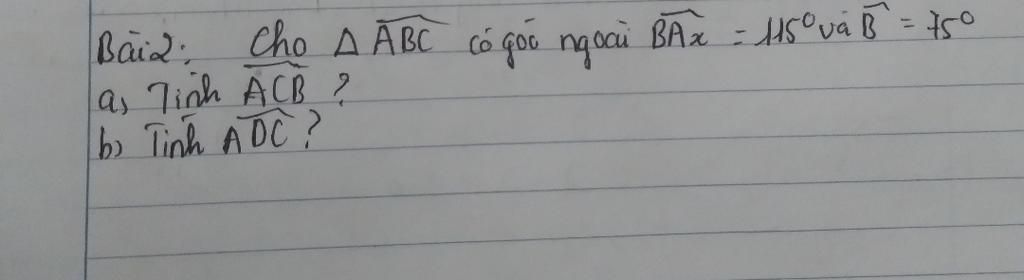 Bài2: Cho Δ ABC có góc ngoài BAx = 115° và B = 75°
a, Tính ACB ?
b) Tính ADC ?